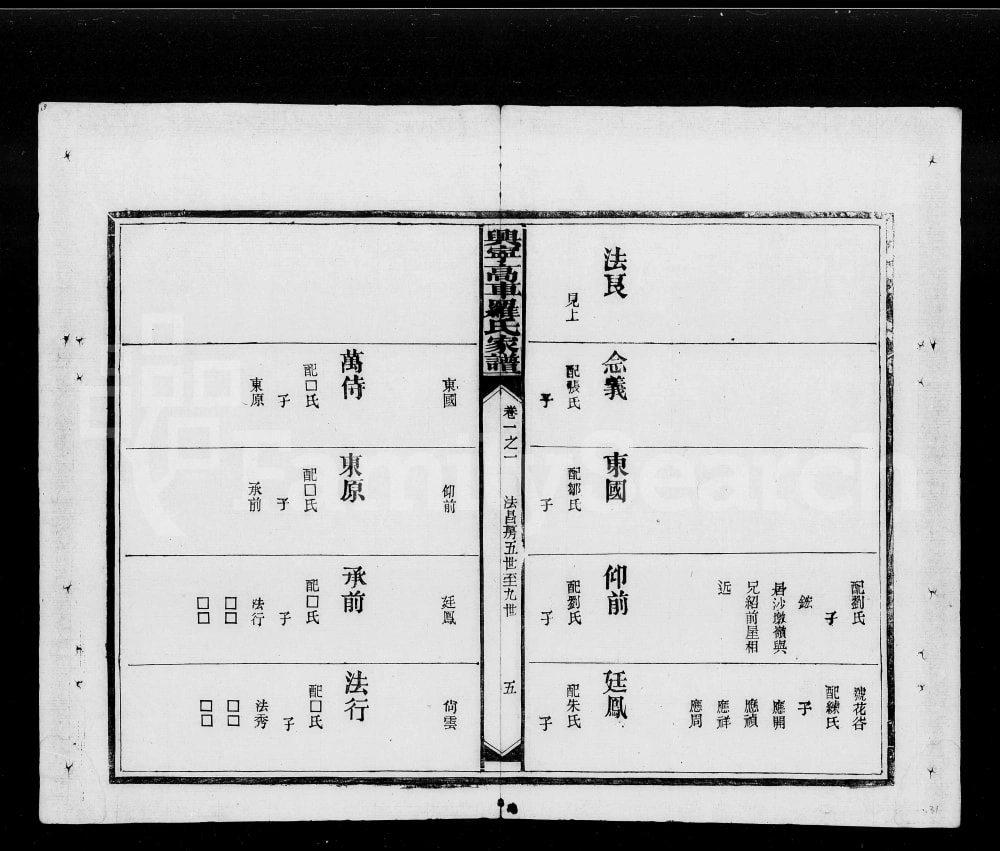 法良
見上
念義
配張氏
子
東國
配鄒氏
子
配劉氏
子
鋐
居沙墩嶺與
兄紹前屋相
近
仰前
配劉氏
子
號花谷
配練氏
子
應開
應禎
應祥
應周
廷鳳
配朱氏
子
興寧高車羅氏家譜
卷一之一
法昌房五世至九世
五
東國
萬侍
配□氏
子
東原
仰前
東原
配□氏
子
承前
廷鳳
承前
配□氏
子
法行
□□
□□
尙雲
法行
配□氏
子
法秀
□□
□□
FamilySearch
31